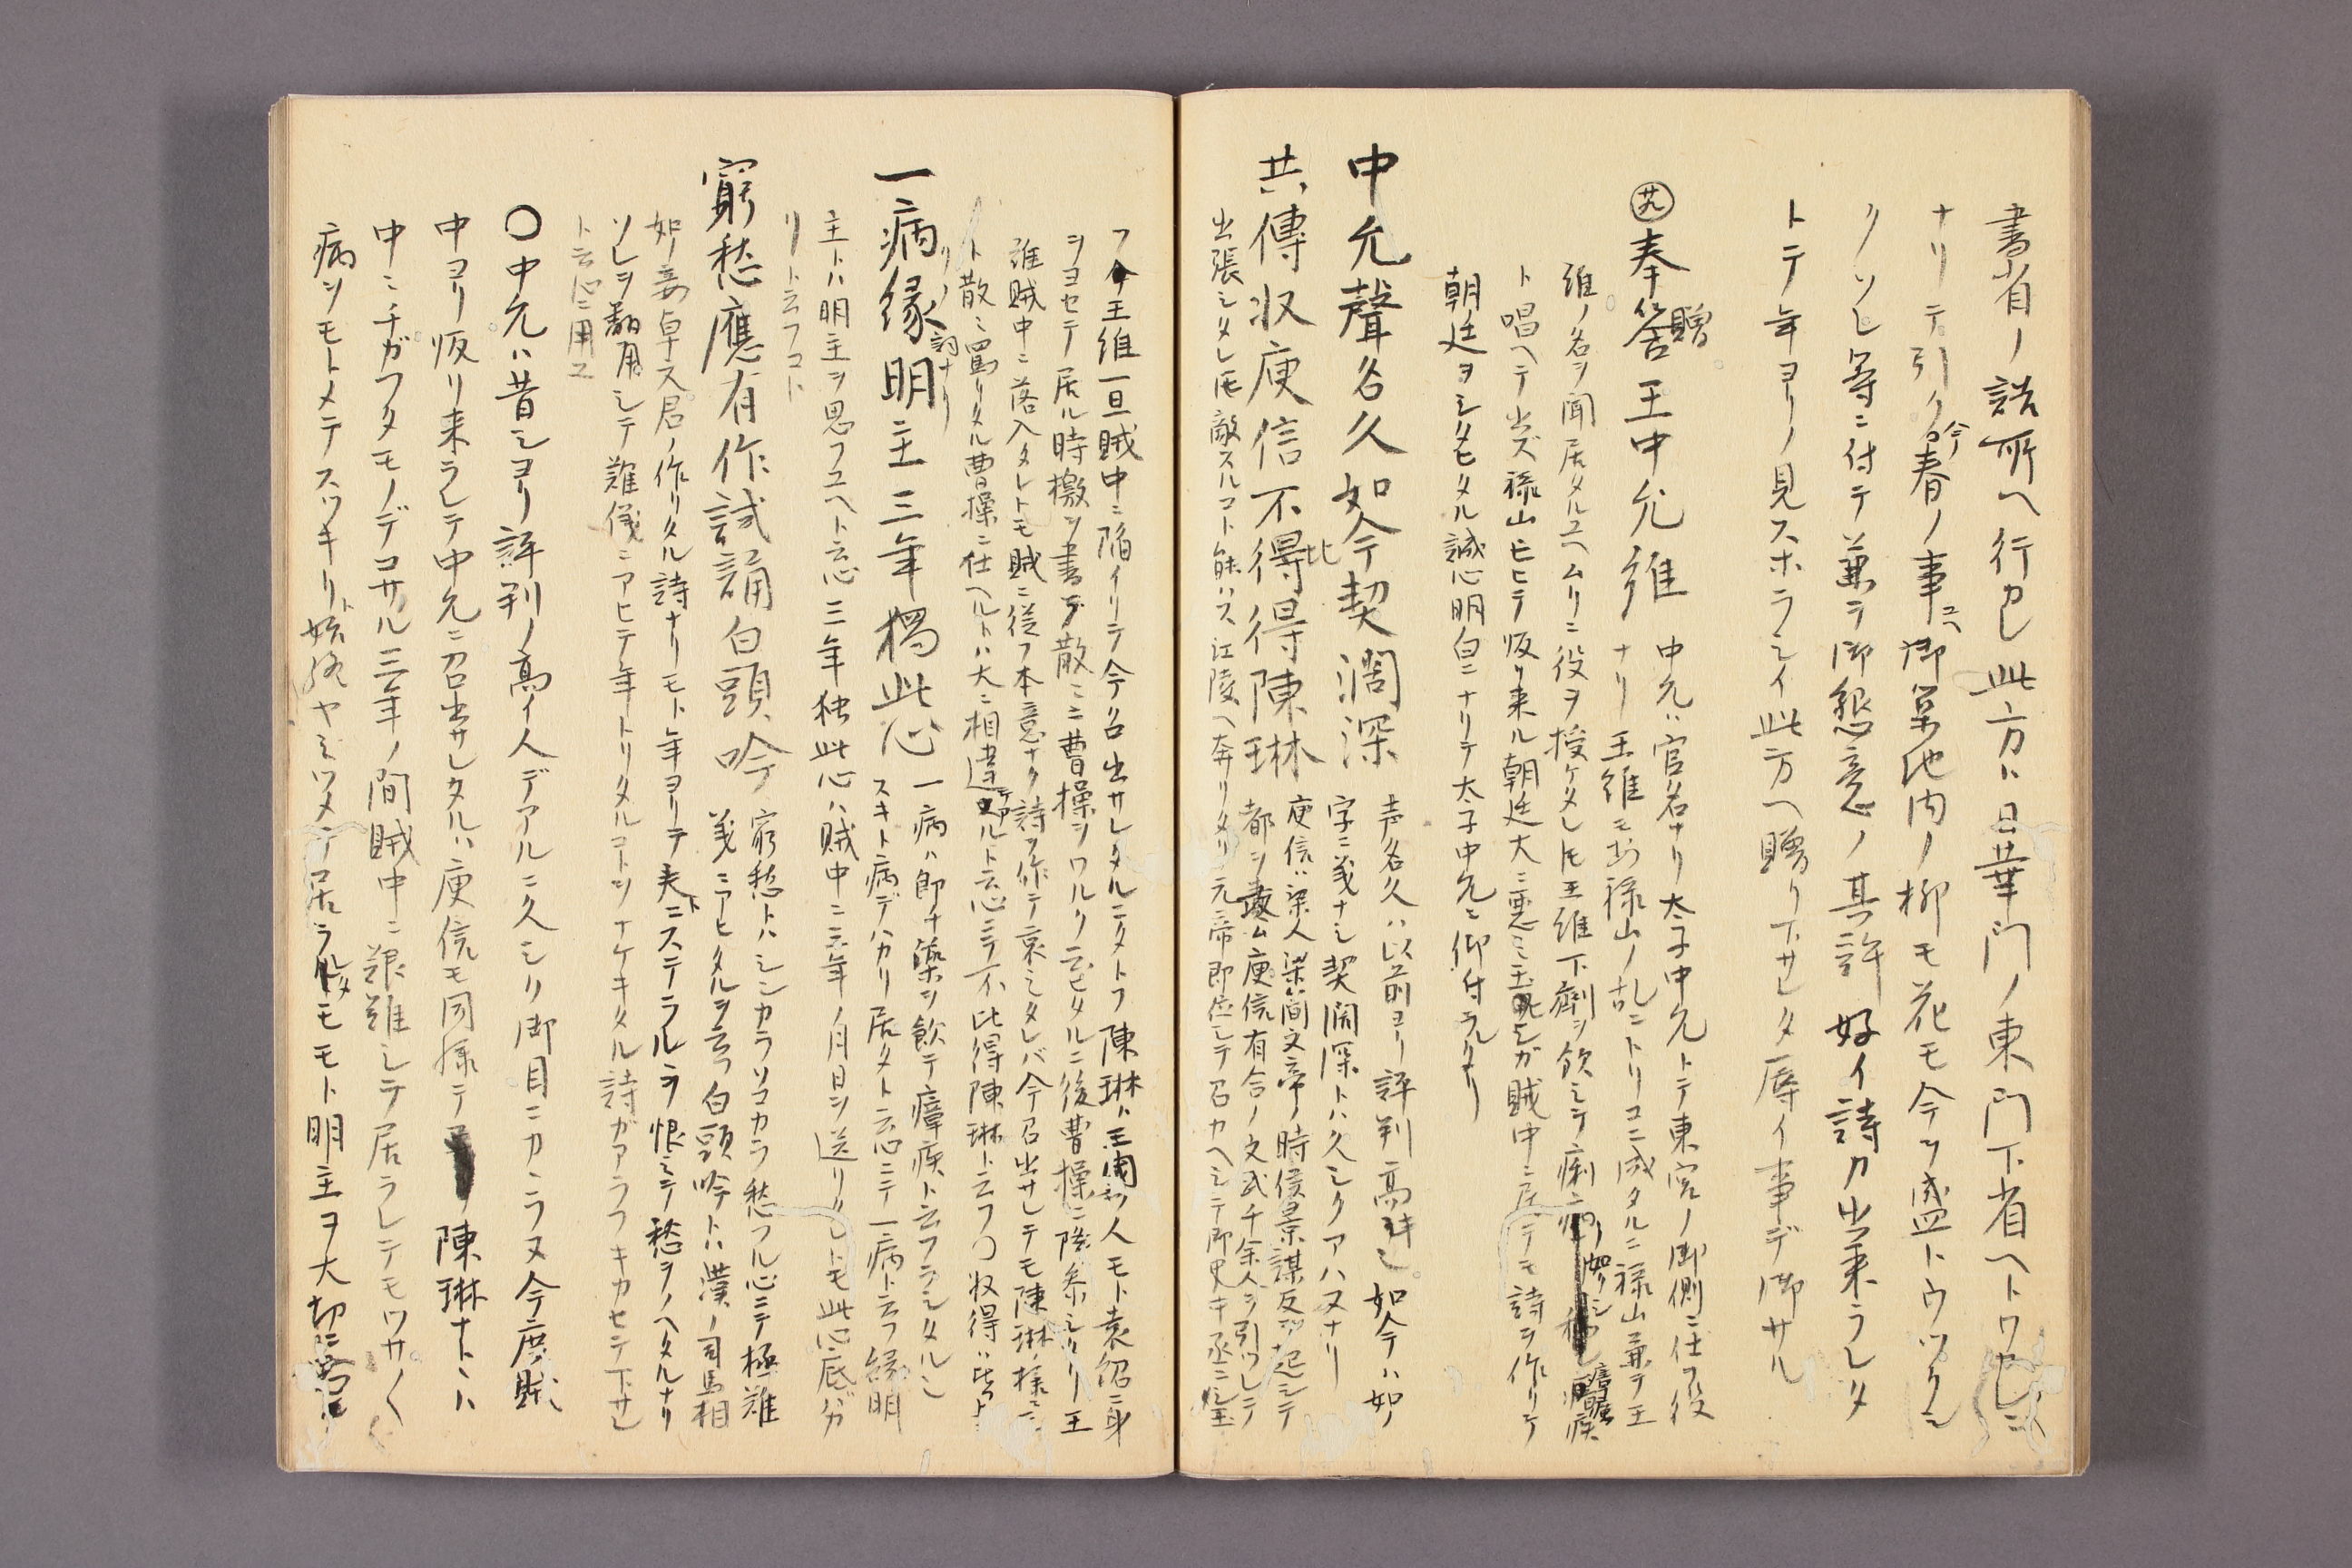 書省ノ詰所ヘ行カレ此方ハ日華門ノ東門下省ヘトワカレニ
ナリテ引ク今春ノ事ユヘ御築地内ノ柳モ花モ今ヲ盛トウツクシ
クソレ等ニ付テ兼テ御懇意ノ其許好イ詩カ出来ラレタ
トテ年ヨリノ見スホラシイ此方ヘ贈リ下サレタ辱イ事デ御サル
㊈奉贈答王中允維
中允ハ官名ナリ太子中允トテ東宮ノ御側ニ仕フ役
ナリ王維モ安禄山ノ乱ニトリコニ成タルニ禄山兼テ王
維ノ名ヲ聞居タルユヘムリニ役ヲ授ケタレ𪜈王維下劑ヲ飲ミテ痢ニ如クシ瘖疾
ト唱ヘテ出ズ禄山ヒヒテ坂リ来ル朝廷大ニ悪ミ玉シガ賊中ニ居テモ詩ヲ作リテ
朝廷ヲシタヒタル誠心明白ニナリテ太子中允ニ仰付ラルタリ
中允聲名久如今契濶深
声名久ハ以前ヨリ評判高キ也如今ハ如ノ
字ニ義ナシ契濶深トハ久シクアハヌナリ
共傳収庾信不比得陳琳
庾信ハ梁人梁簡文帝ノ時侯景謀反ヲ起シテ
都ヲ襲ム庾信有合ノ文武千余人ヲ引ツレテ
出張シタレ𪜈敵スルコト能ハス江陵ヘ奔リタリ元帝即位シテ召カヘシテ御史中丞ニシ玉
フ今王維一旦賊中ニ陥イリテ今召出サレタルニタトフ陳琳ハ三国ノ人モト袁紹ニ身
ヲヨセテ居ル時檄ヲ書テ散々ニ曹操ヲワルク云ヒタルニ後曹操ニ降参シタリ王
維賊中ニ落入タレトモ賊ニ従フ本意ナク詩ヲ作テ哀シタレバ今召出サレテモ陳琳ノ様ニ
ト散々罵リタル曹操ニ仕ヘルトハ大ニ相違ナルト云心ニテ不比得陳琳ト云フ〇収得ハ
リノ詞ナリ
一病縁明主三年獨此心
一病ハ即チ薬ヲ飲テ瘴疾ト云フラシタル也
スキト病デハカリ居タト云心ニテ一病ト云フ縁明
主トハ明主ヲ思フユヘト云心三年独此心ハ賊中ニ三年ノ月日ヲ送リシトモ此心底ガ
リト云フコト
窮愁應有作試誦白頭吟
窮愁トハシンカラソコカラ愁フル心ニテ極難
義ニアヒタルヲ云フ白頭吟トハ漢ノ司馬相
如ノ妾卓文君ノ作リタル詩ナリモト年ヨリテ夫ニステラルヲ恨ミテ愁ヲノヘタルナリ
ソレヲ翻用シテ難儀ニアヒテ年トリタルコトヲナケキタル詩ガアラフキカセテ下サレ
ト云心ニ用ユ
〇中允ハ昔シヨリ評判ノ高イ人デアルニ久シク御目ニカヽラヌ今度賊
中ヨリ坂リ来ラレテ中允ニ召出サレタルハ庾信モ同様テ陳琳ナトヽハ
中ニチガフタモノデコサル三年ノ間賊中ニ艱難シテ居ラレテモツサく
病ヲモトメテスツキリト始終ヤミツメテ居ラレタモモト明主ヲ大切ニ